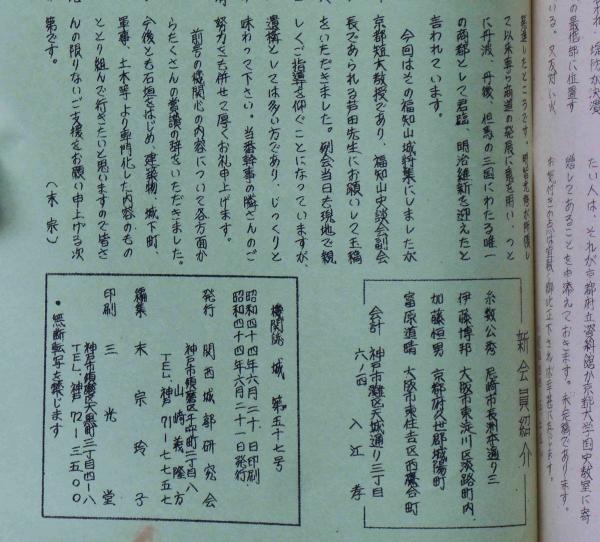 て以来専ら商道の発展に意を用い、つと
に丹波、丹後、但馬の三国にわたる唯一
の商都として君臨、明治維新を迎えたと
言われています。
今回はその福知山城特集にしましたが
京都短大教授であり、福知山史談会副会
長であられる芦田先生にお願いして玉稿
をいただきました。例会当日も現地で親
しくご指導を仰ぐことになっていますが、
遺構としては多い方であり、じっくりと
味わって下さい。当番幹事の隣さんのご
努力さも併せて厚くお礼申上げます。
前号の機関心の内容について各方面か
らたくさんの賞讃の辞をいただきました。
今後とも石垣をはじめ、建築物、城下町、
軍事、土木等より専門化した内容のもの
ととり組んで行きたいと思いますので皆さ
んの限りないご支援をお願い申上げる次
第です。
(末宗)
新会員紹介
糸数公秀 尼崎市長洲本通り三
伊藤博邦 大阪市東淀川区淡路町内
加藤恒男 京都府久世郡城陽町
富原道晴 大阪市東住吉区西鷹合町
会計 神戸市灘区天城通り三丁目
六ノ四 入江孝
機関誌 城 第五十七号
昭和四十四年六月二十日印刷
昭和四十四年六月二十一日発行
発行 関西城郭研究会
神戸市須磨区千守町二丁目八
山崎義隆方
TEL 神戸71-七七五七
編集 末宗玲子
印刷 三光堂
神戸市須磨区大黒町三丁目四ー八
TEL 神戸72-三五〇〇
・無断転写を禁じます
たい人は、それか京都府立資料館か京都大学国史教室に寄
贈してあることを申添えておきます。未完稿であります。